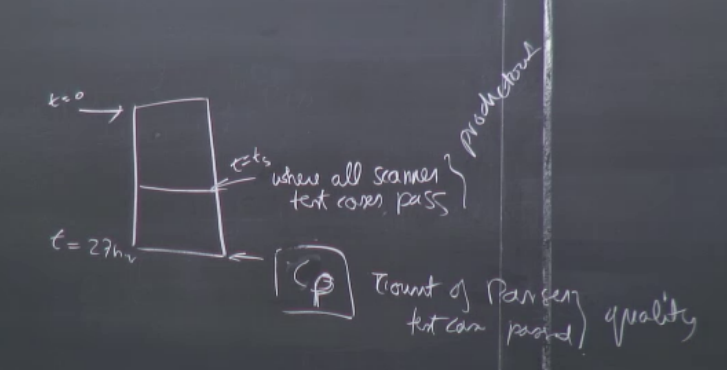 t=0
t=ts
where all scanner
test cases pass
t = 27hr
Cp
Count of Parser
test case passed
quality